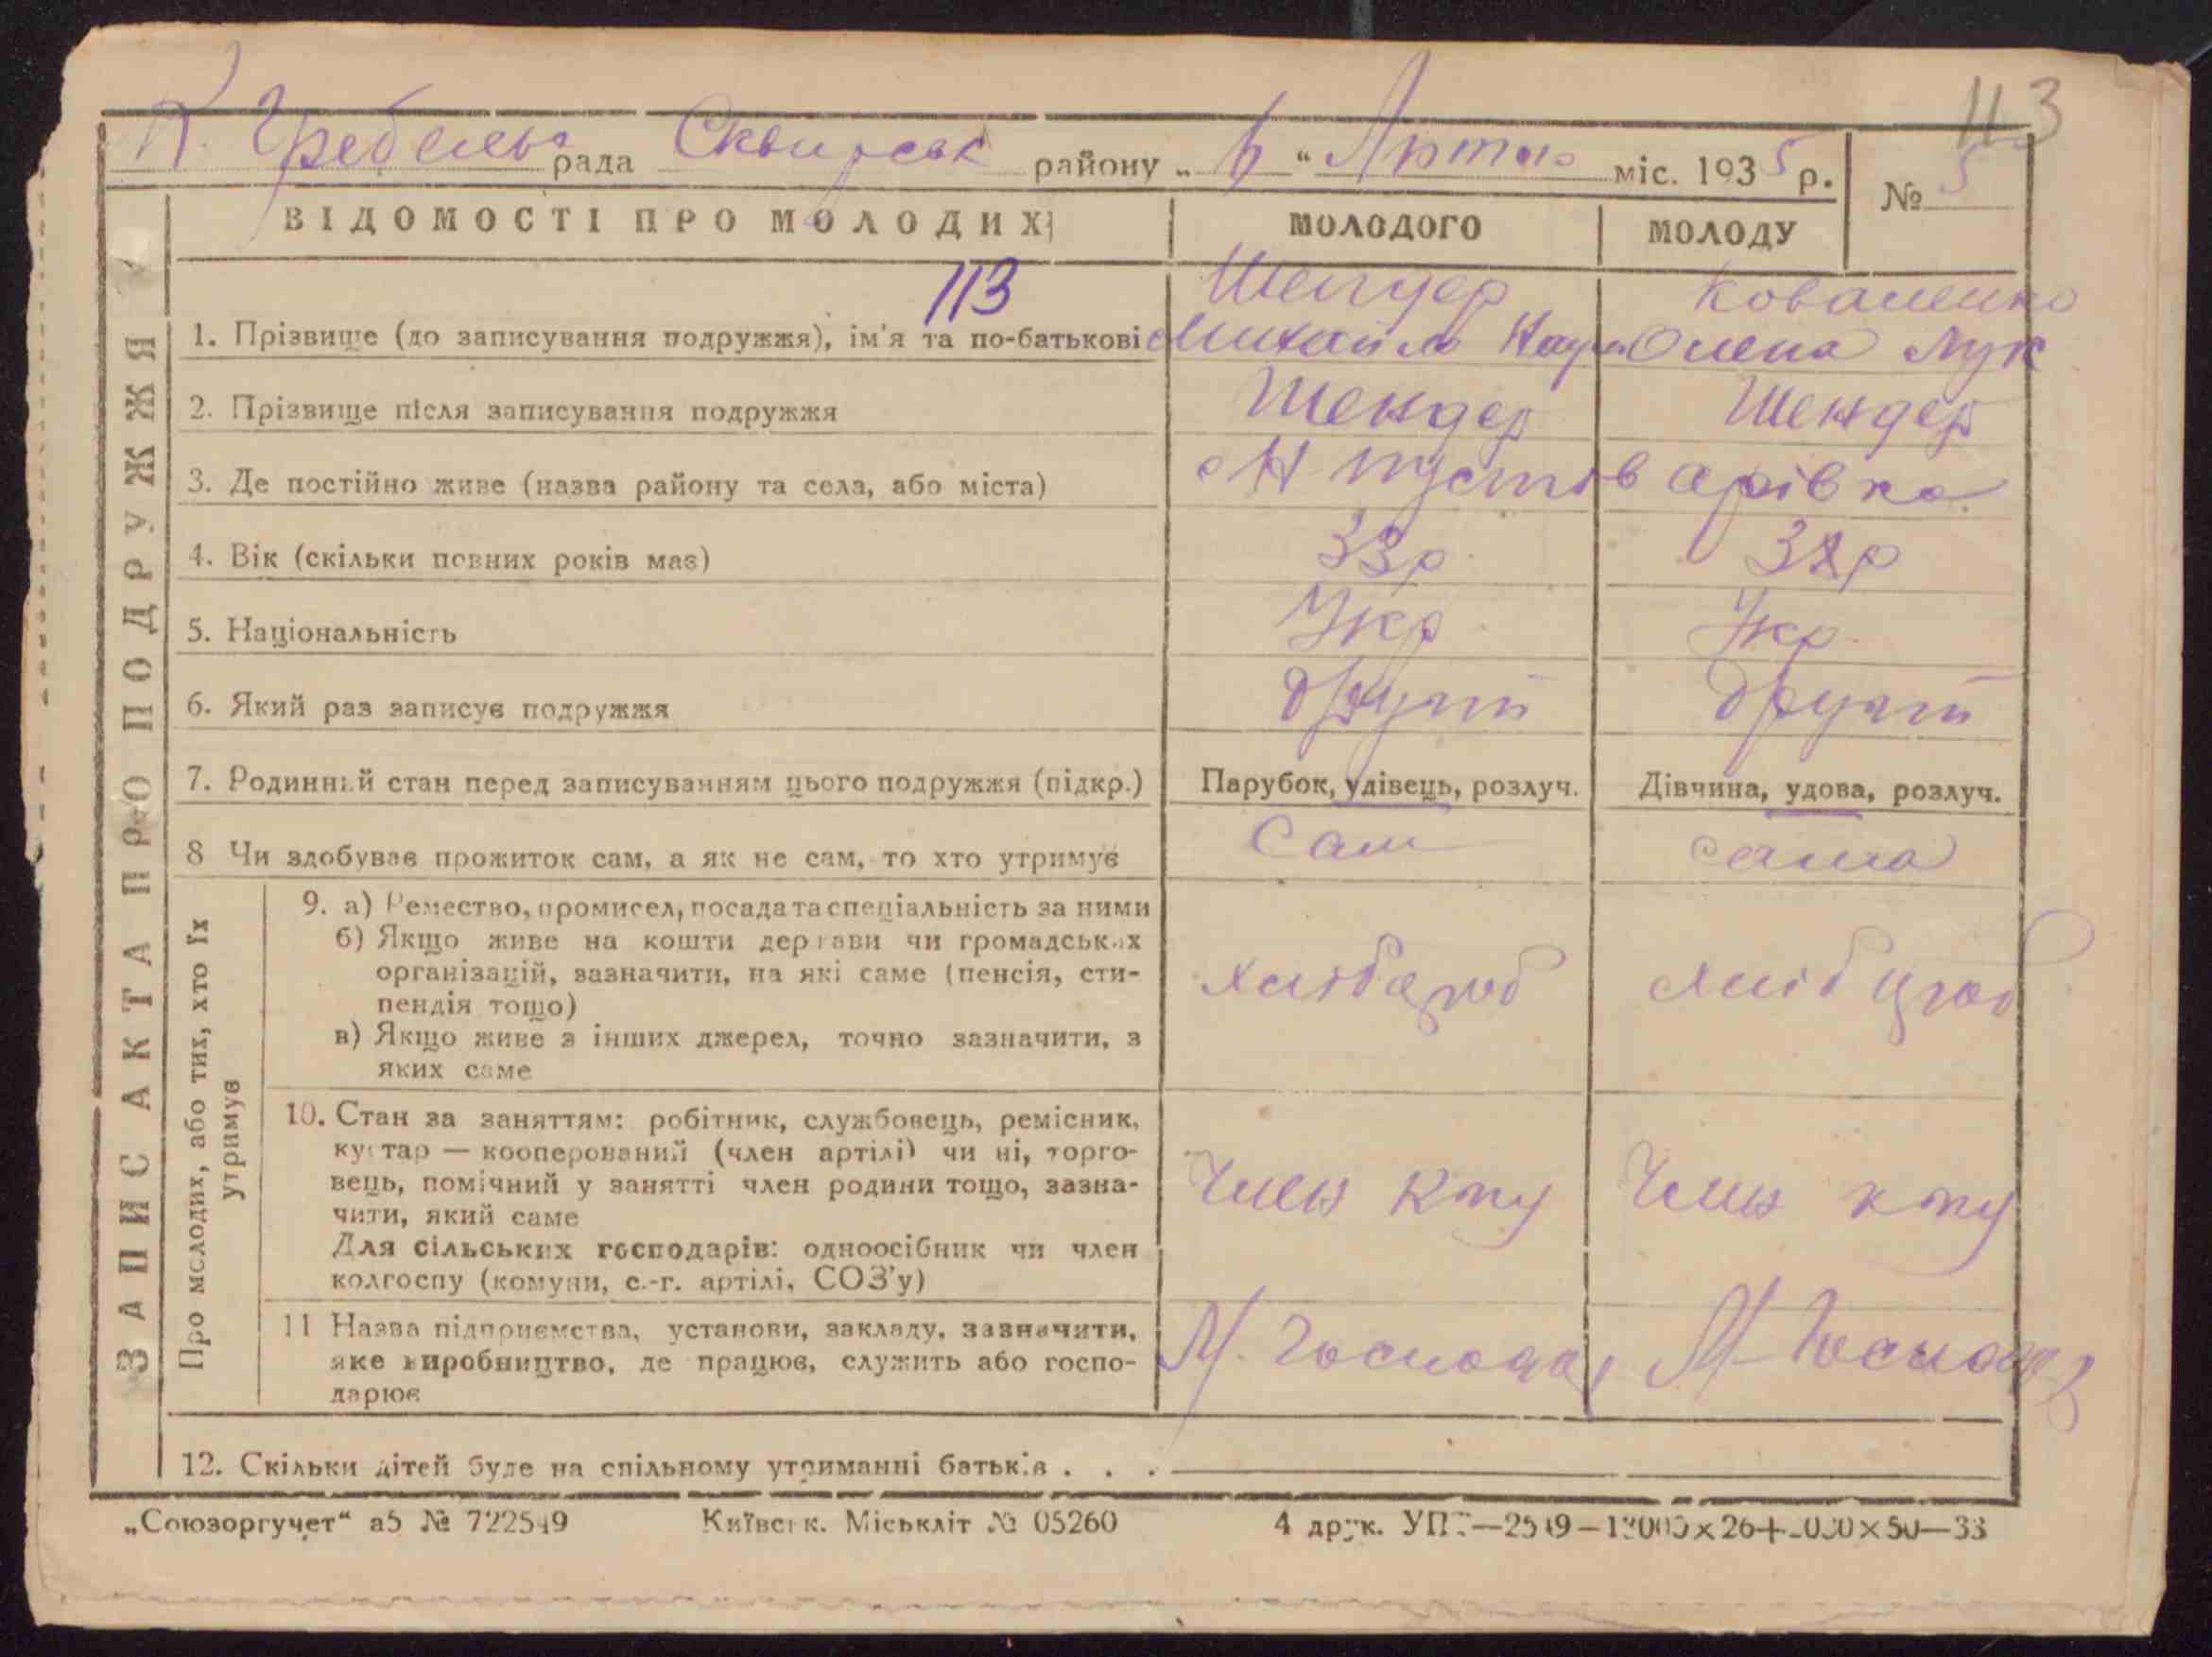 113
К. Гребельс рада Сквирськ району „ 6 “ міс. 1935 р. № 5
ВІДОМОСТІ ПРО МОЛОДИХ МОЛОДОГО МОЛОДУ
113
Шендер Коваленко
1. Прізвище (до записування подружжя), ім'я та по-батькові Михайло Наум Олена Лук
2. Прізвище після записування подружжя Шендер Шендер
3. Де постійно живе (назва району та села, або міста) Н пустов арівка
4. Вік (скільки повних років має) 33р
5. Національність Укр Укр
6. Який раз записує подружжя другий другий
7. Родинний стан перед записуванням цього подружжя (підкр.) Парубок, удівець, розлуч. Дівчина, удова, розлуч.
8 Чи здобуває прожиток сам, а як не сам, то хто утримує Сам сама
9. а) Ремество, промисел, посада та спеціальність за ними
б) Якщо живе на кошти держави чи громадських
організацій, зазначити, на які саме (пенсія, сти-
пендія тощо)
в) Якщо живе з інших джерел, точно зазначити, з
яких саме
хлібароб хлібороб
10. Стан за заняттям: робітник, службовець, ремісник,
кустар — кооперований (член артілі) чи ні, торго-
вець, помічний у занятті член родини тощо, зазна-
чити, який саме
Для сільських господарів: одноосібник чи член
колгоспу (комуни, с.-г. артілі, СОЗ'у)
Член Член
11 Назва підприємства, установи, закладу, зазначити,
яке виробництво, де працює, служить або госпо-
дарює
12. Скільки дітей буде на спільному утриманні батьків . . .
ЗАПИС АКТА ПРО ПОДРУЖЖЯ
Про молодих, або тих, хто їх
утримує
„Союзоргучет“ а5 № 722549 Київськ. Міськліт № 05260 4 друк.